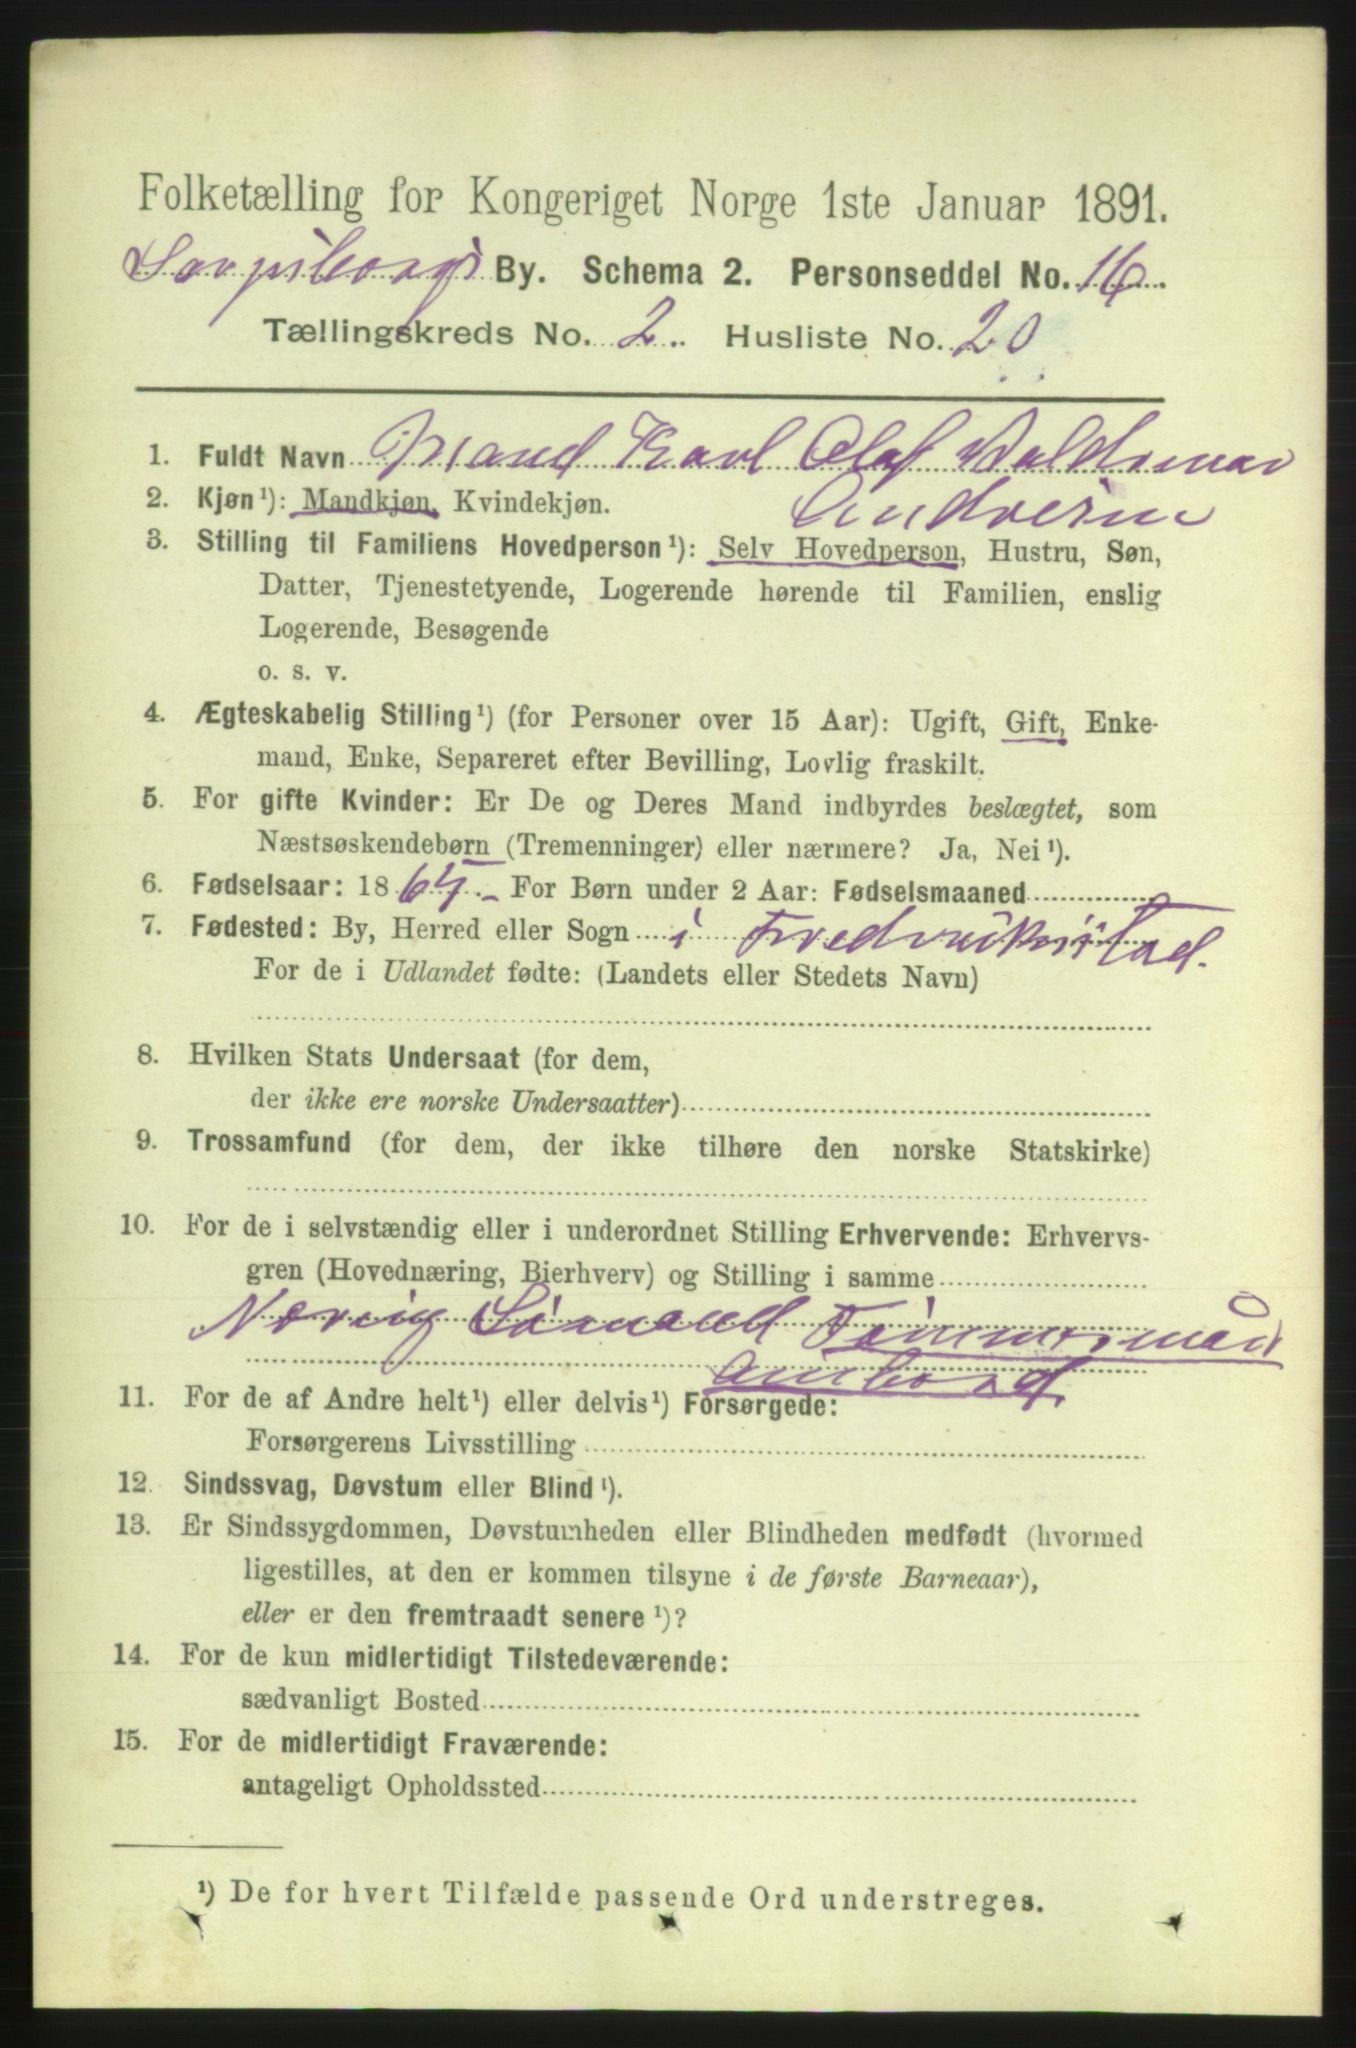 Folketælling for Kongeriget Norge 1ste Januar 1891.
Sarpsborgs By. Schema 2. Personseddel No. 16
Tællingskreds No. 2. Husliste No. 20
1. Fuldt Navn Mand Karl Olaf Valdemar
Andresen
2. Kjøn¹): Mandkjøn, Kvindekjøn.
3. Stilling til Familiens Hovedperson¹): Selv Hovedperson, Hustru, Søn,
Datter, Tjenestetyende, Logerende hørende til Familien, enslig
Logerende, Besøgende
o. s. v.
4. Ægteskabelig Stilling¹) (for Personer over 15 Aar): Ugift, Gift, Enke-
mand, Enke, Separeret efter Bevilling, Lovlig fraskilt.
5. For gifte Kvinder: Er De og Deres Mand indbyrdes beslægtet, som
Næstsøskendebørn (Tremenninger) eller nærmere? Ja, Nei¹).
6. Fødselsaar: 1865. For Børn under 2 Aar: Fødselsmaaned
7. Fødested: By, Herred eller Sogn i Fredrikstad.
For de i Udlandet fødte: (Landets eller Stedets Navn)
8. Hvilken Stats Undersaat (for dem,
der ikke ere norske Undersaatter)
9. Trossamfund (for dem, der ikke tilhøre den norske Statskirke)
10. For de i selvstændig eller i underordnet Stilling Erhvervende: Erhvervs-
gren (Hovednæring, Bierhverv) og Stilling i samme
Næring Sømand Tømmermand
ombord.
11. For de af Andre helt¹) eller delvis¹) Forsørgede:
Forsørgerens Livsstilling
12. Sindssvag, Døvstum eller Blind¹).
13. Er Sindssygdommen, Døvstumheden eller Blindheden medfødt (hvormed
ligestilles, at den er kommen tilsyne i de første Barneaar),
eller er den fremtraadt senere¹)?
14. For de kun midlertidigt Tilstedeværende:
sædvanligt Bosted
15. For de midlertidigt Fraværende:
antageligt Opholdssted
¹) De for hvert Tilfælde passende Ord understreges.